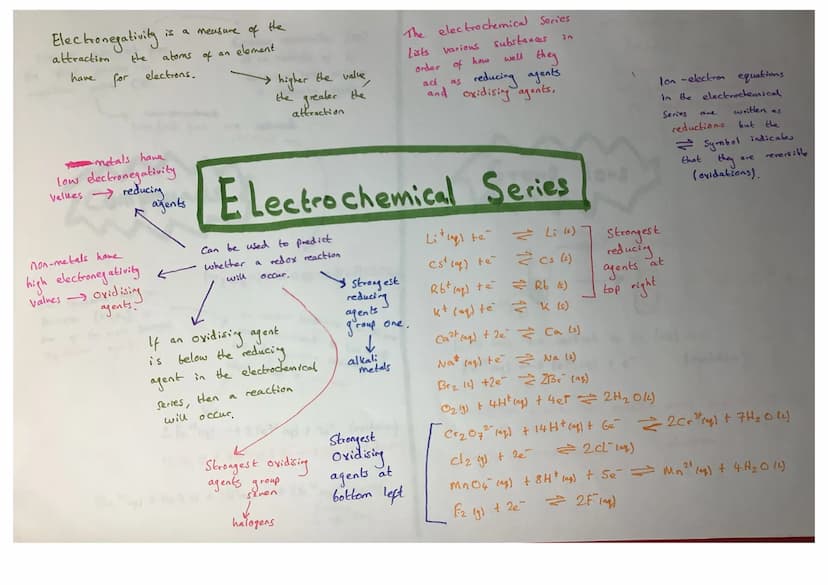 Electronegativity is a measure of the
attraction the atoms of an element
have for electrons.
→ higher the value,
the greater the
attraction
The electrochemical series
lists various substances in
order of how well they
act as reducing agents
and oxidising agents.
Ion-electron equations
in the electrochemical
series are written as
reductions but the
⇌ symbol indicates
that they are reversible
(oxidations).
Electrochemical Series
metals have
low electronegativity
values → reducing
agents
can be used to predict
whether a redox reaction
will occur.
non-metals have
high electronegativity
values → oxidising
agents.
If an oxidising agent
is below the reducing
agent in the electrochemical
series, then a reaction
will occur.
strongest
reducing
agents
group one.
↓
alkali
metals
Strongest oxidising
agents group
seven
↓
halogens
Strongest
oxidising
agents at
bottom left
Li⁺(aq) + e⁻ ⇌ Li (s)
Cs⁺(aq) + e⁻ ⇌ Cs (s)
Rb⁺(aq) + e⁻ ⇌ Rb (s)
K⁺(aq) + e⁻ ⇌ K (s)
Ca²⁺(aq) + 2e⁻ ⇌ Ca (s)
Na⁺(aq) + e⁻ ⇌ Na (s)
Br₂ (l) + 2e⁻ ⇌ 2Br⁻ (aq)
O₂(g) + 4H⁺(aq) + 4e⁻ ⇌ 2H₂O(l)
Cr₂O₇²⁻(aq) + 14H⁺(aq) + 6e⁻ ⇌ 2Cr³⁺(aq) + 7H₂O(l)
Cl₂(g) + 2e⁻ ⇌ 2Cl⁻(aq)
MnO₄⁻(aq) + 8H⁺(aq) + 5e⁻ ⇌ Mn²⁺(aq) + 4H₂O(l)
F₂(g) + 2e⁻ ⇌ 2F⁻(aq)
Strongest
reducing
agents at
top right